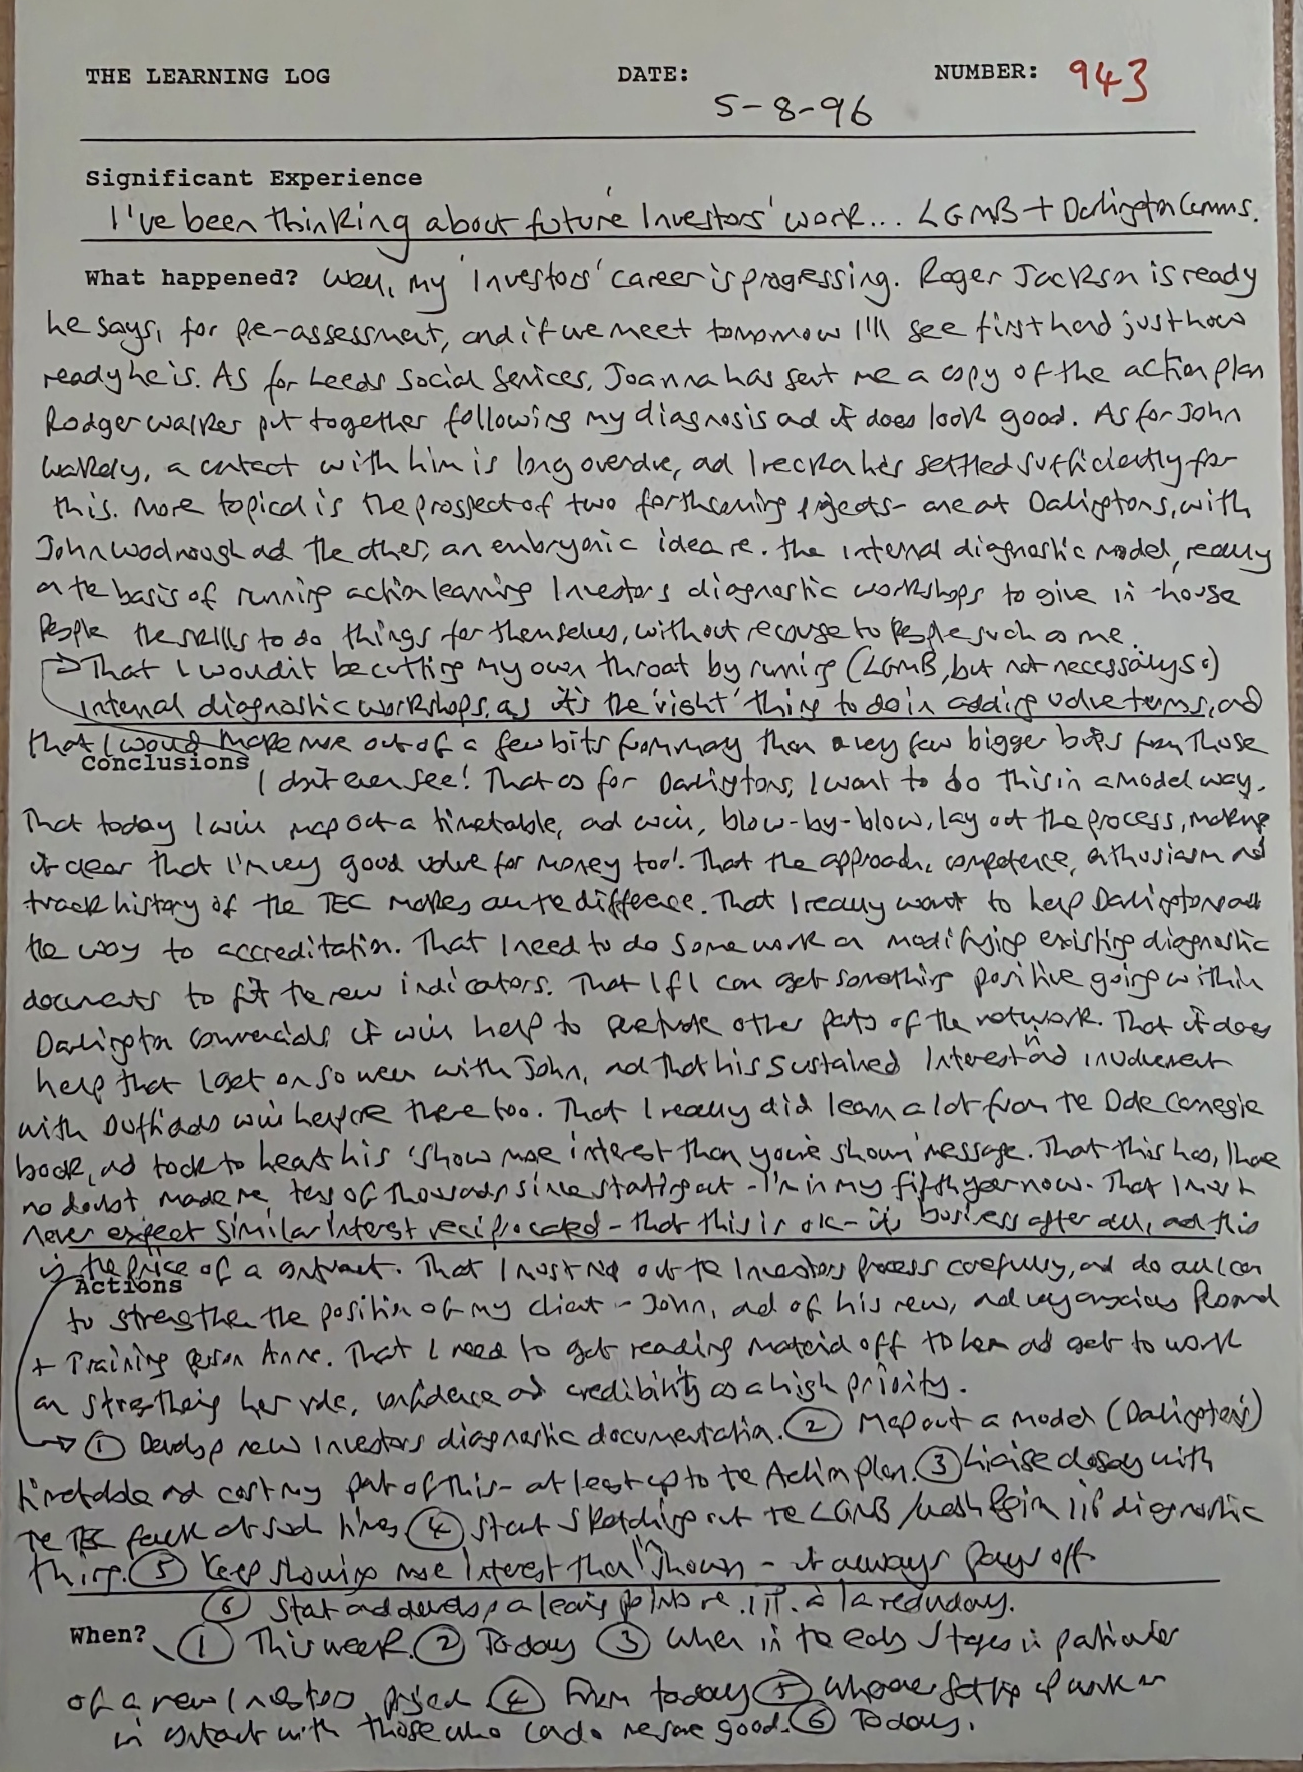 THE LEARNING LOG DATE: NUMBER: 943
5-8-96
Significant Experience
I've been thinking about future 'Investors' work... LGMB + Darlington Comms.
What happened? Well, my 'Investors' career is progressing. Roger Jackson is ready
he says, for pre-assessment, and if we meet tomorrow I'll see first hand just how
ready he is. As for Leeds Social Services, Joanna has sent me a copy of the action plan
Rodger Walker put together following my diagnosis and it does look good. As for John
Wakely, a contact with him is long overdue, and I reckon he's settled sufficiently for
this. More topical is the prospect of two forthcoming projects - one at Darlingtons, with
John Woodnough and the other, an embryonic idea re. the internal diagnostic model, really
on the basis of running action learning Investors diagnostic workshops to give in-house
people the skills to do things for themselves, without recourse to people such as me.
→ That I wouldn't be cutting my own throat by running (LGMB, but not necessarily so)
internal diagnostic workshops, as it's the 'right' thing to do in adding value terms, and
that I would make more out of a few bits from many than a very few bigger bits from those
Conclusions
I don't even see! That as for Darlingtons, I want to do this in a model way.
That today I will map out a timetable, and will, blow-by-blow, lay out the process, making
it clear that I'm very good value for money too! That the approach, competence, enthusiasm and
track history of the TEC makes all the difference. That I really want to help Darlingtons all
the way to accreditation. That I need to do some work on modifying existing diagnostic
documents to fit the new indicators. That if I can get something positive going within
Darlington Commercials it will help to persuade other parts of the network. That it does
help that I get on so well with John, and that his sustained interest in and involvement
with Duffields will help me there too. That I really did learn a lot from the Dale Carnegie
book, and took to heart his 'show more interest than you're shown' message. That this has, I have
no doubt made me tens of thousands since starting out - I'm in my fifth year now. That I must
never expect similar interest reciprocated - that this is ok - it's business after all, and this
is the price of a contract. That I must map out the Investors process carefully, and do all I can
Actions
to strengthen the position of my client - John, and of his new, and very anxious Personnel
+ Training person Anne. That I need to get reading material off to her and get to work
on strengthening her role, confidence and credibility as a high priority.
→ ① Develop new Investors diagnostic documentation. ② Map out a model (Darlingtons)
timetable and cost my part of this - at least up to the Action Plan. ③ Liaise closely with
the TEC at such times ④ Start sketching out the LGMB / iip diagnostic
thing. ⑤ Keep showing more interest than I'm shown - it always pays off
⑥ Start and develop a learning points re. iip. à la redundancy.
When? ① This week. ② Today ③ When in the early stages in particular
of a new Investors project ④ From today ⑤ Whenever setting up work or
in contact with those who can do me some good. ⑥ Today.